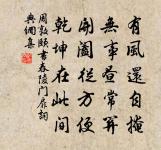 有風還自掩
無事晝常關
開闔從方便
乾坤在此間
周敦頤書舂陵門扉詞
典網集